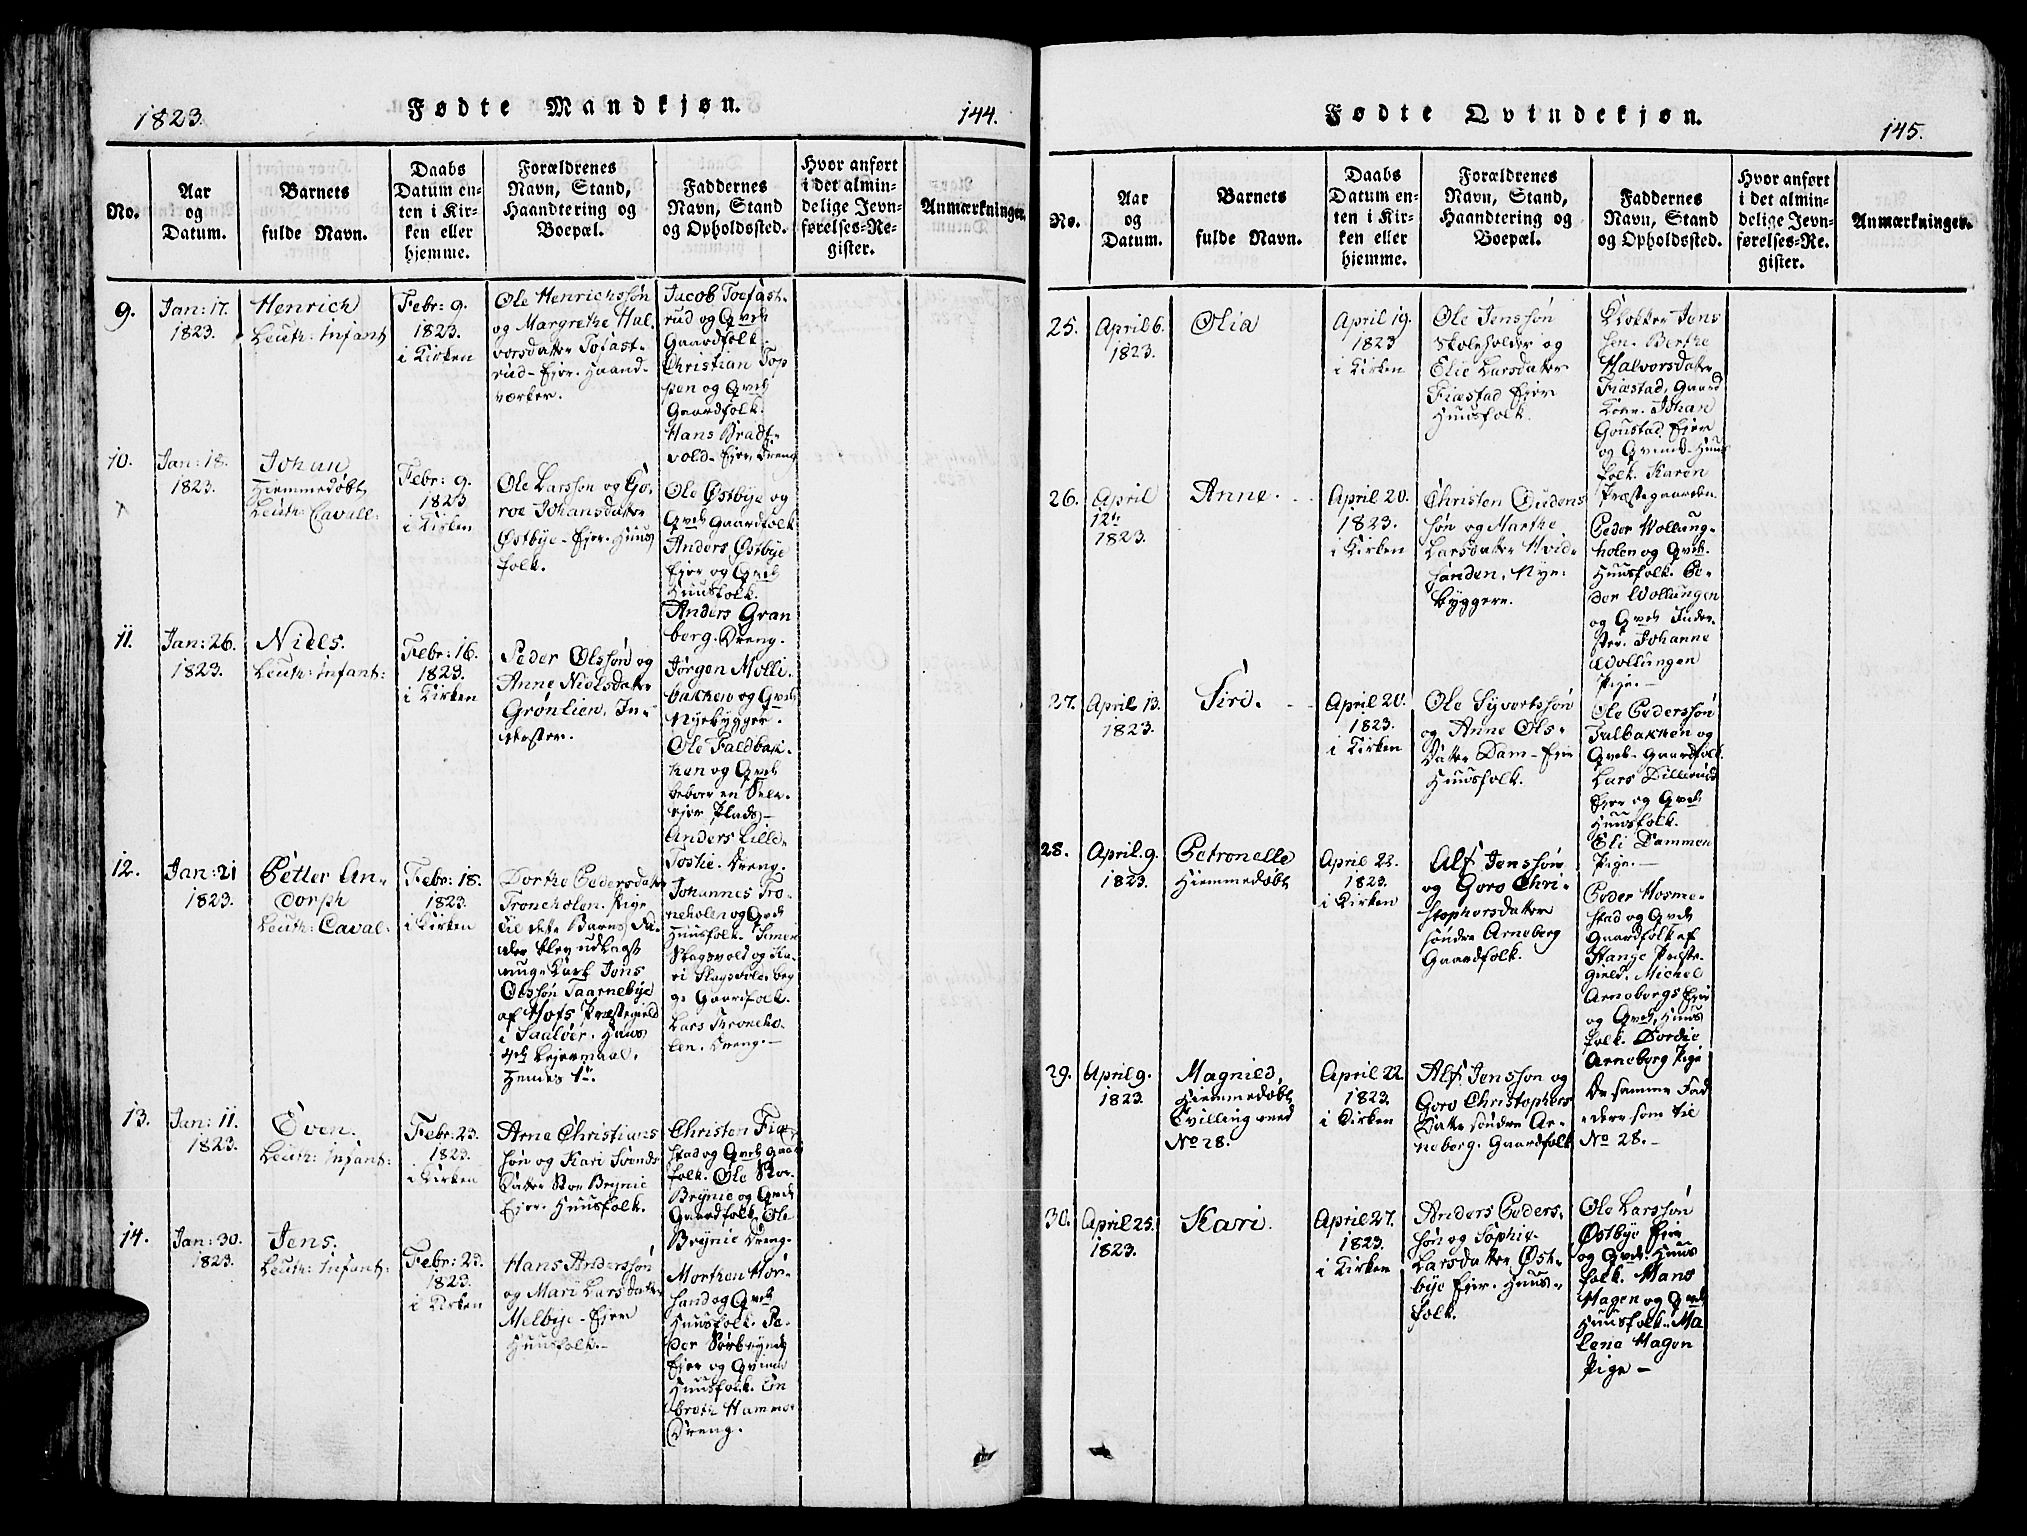 1823.
Fødte Mandkjøn.
144.
No.
Aar
og
Datum.
Barnets
fulde Navn.
Daabs
Datum en-
ten i Kir-
ken eller
hjemme.
Forældrenes
Navn, Stand,
Haandtering og
Boepæl.
Faddernes
Navn, Stand
og Opholdssted.
Hvor anført
i det almin-
delige Jevn-
førelses-Re-
gister.
Anmærkninger.
9.
Jan: 17.
1823.
Henrich
Leuth: Infant
Febr: 9.
1823.
i Kirken
Ole Henrichssøn
og Margrethe Hal-
vorsdatter Tofast-
rud - Ejer. Haand-
værker.
Jacob Tofast-
rud og Qvde
Gaardfolk.
Christian Top
pen og Qvde
Gaardfolk.
Hans Bradt-
vold - Ejer Dreng
10.
Jan: 18.
1823.
Johan
Hiemmedøbt
Leuth: Cavall:
Febr: 9.
1823
i Kirken
Ole Larssøn og Go-
roe Johansdatter
Østbye - Ejer. Huus
folk.
Ole Østbye og
Qvde Gaardfolk
Anders Østbye
Ejer og Qvde
Huusfolk.
Anders Gran
berg. Dreng.
11.
Jan: 26.
1823.
Niels.
Leuth: Infant:
Febr: 16.
1823.
i Kirken
Peder Olssøn og
Anne Nielsdatter
Grønlien, In-
derster.
Jørgen Molli-
bakken og Qvde
Nyebygger.
Ole Faldbak-
ken og Qvde
beboer en Selv-
ejer Plads -
Anders Lille-
Toshie. Dreng.
12.
Jan: 21
1823.
Petter An-
dorph
Leuth: Caval:
Febr: 18.
1823.
i Kirken
Dorthe Pedersdatter
Troneholen. Pige
til dette Barns Fa-
der blev udlagt
unge Karl Jens
Olssøn Taarnebye
af Hofs Præstegield
i Saaløer. Hans
Lejermaal.
Hendes 1te.
Johannes Tro-
neholen og Qvde
Huusfolk. Simen
Slagsvold og Ka-
ri Slagsvold beg
ge Gaardfolk.
Lars Troneho-
len. Dreng. -
13.
Jan: 11.
1823.
Even.
Leuth: Infant:
Febr: 23.
1823.
i Kirken
Arne Christians
søn og Kari Svends
datter Stor Brynie
Ejer. Huusfolk.
Christen Fiæ-
stad og Qvde Gaard
folk. Ole Stor
Brynie og Qvde
Gaardfolk. Ole
Brynie Dreng.
14.
Jan: 30.
1823.
Jens.
Leuth: Infant:
Febr: 23.
1823.
i Kirken
Hans Anderssøn
og Mari Larsdatter
Melbye - Ejer
Huusfolk. -
Morthen Hør-
sand og Qvde
Huusfolk. Pe-
der Sørbrynie
Ejer og Qvinde
Huusfolk. En
broth Hamme
Dreng.
Fødte Qvindekjøn.
145.
No.
Aar
og
Datum.
Barnets
fulde Navn.
Daabs
Datum en-
ten i Kir-
ken eller
hjemme.
Forældrenes
Navn, Stand,
Haandtering og
Boepæl.
Faddernes
Navn, Stand
og Opholdssted.
Hvor anført
i det almin-
delige Jevn-
førelses-Re-
gister.
Anmærkninger.
25.
April 6.
1823.
Olia
April 19.
1823
i Kirken
Ole Jenssøn
Skoleholder og
Elie Larsdatter
Fiæstad Ejer
Huusfolk.
Klokker Jens
sen. Berthe
Halvorsdatter
Fiæstad, Gaard
Kone. Johan
Goustad Ejer
og Qvinde. Huus
folk. Karen
Præstegaarden.
26.
April
12te
1823.
Anne.
April 20.
1823.
i Kirken
Christen Gudens
søn og Marthe
Larsdatter Hvid-
sanden, Nye-
byggere.
Peder Vollung-
holen og Qvde.
Huusfolk. Pe-
der Vollungen
og Qvde Inder-
ster. Johanne
Vollungen
Pige. -
27.
April 13.
1823.
Siri.
April 20.
1823.
i Kirken
Ole Syvertssøn
og Anne Ols-
datter Dam - Ejer
Huusfolk.
Ole Pederssøn
Julbakken og
Qvde - Gaardfolk.
Lars Dillerud
Ejer og Qvde
Huusfolk.
Eli Dammen
Pige. -
28.
April. 9.
1823.
Petronelle
Hiemmedøbt
April 22.
1823.
i Kirken
Alf Jenssøn
og Goro Chri-
stophersdatter
søndre Arneberg
Gaardfolk.
Peder Hosme-
stad og Qvde
Gaardfolk af
Stange Præste-
gield. Michel
Arnebergs Ejer
og Qvde, Huus
folk. Dordie
Arneberg Pige
29.
April 9.
1823.
Magnild,
Hiemmedøbt
Tvilling med
No 28.
April 22
1823.
i Kirken
Alf Jenssøn og
Goro Christophers
datter søndre Ar-
neberg. Gaardfolk
De samme Fad
dere som til
No 28. -
30.
April 25.
1823.
Kari.
April 27.
1823.
i Kirken
Anders Peders-
søn og Sophie
Larsdatter Øst-
bye Ejer. Huus-
folk.
Ole Larssøn
Østbye Ejer
og Qvde. Huus
folk. Hans
Hagen og Qvde
Huusfolk. Ma
lene Hagen
Pige -